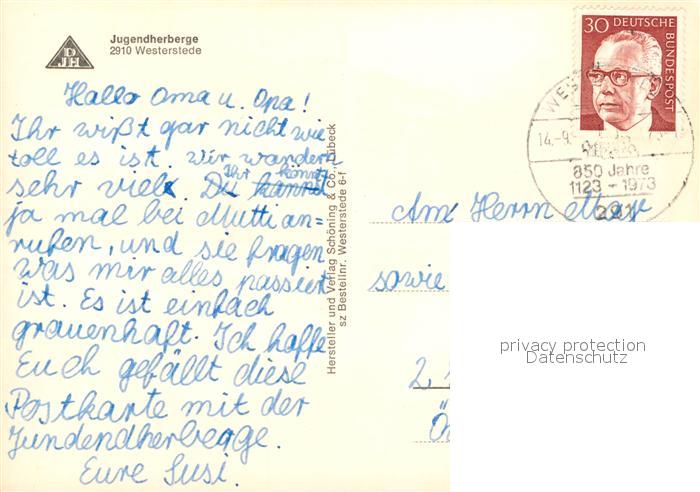 Jugendherberge
2910 Westerstede
DJH
Hallo Oma u. Opa!
Ihr wißt gar nicht wie
toll es ist. Wir wandern
sehr viel. Ihr könnt
ja mal bei Mutti an-
rufen, und sie fragen
was mir alles passiert
ist. Es ist einfach
grauenhaft. Ich hoffe
Euch gefällt diese
Postkarte mit der
Jundendherberge.
Eure Susi.
Hersteller und Verlag Schöning & Co., Lübeck
sz Bestellnr. Westerstede 6-f
30 DEUTSCHE
BUNDESPOST
WES
14.-9.
850 Jahre
1123 - 1973
291
Am Herrn
sowie
2.
privacy protection
Datenschutz